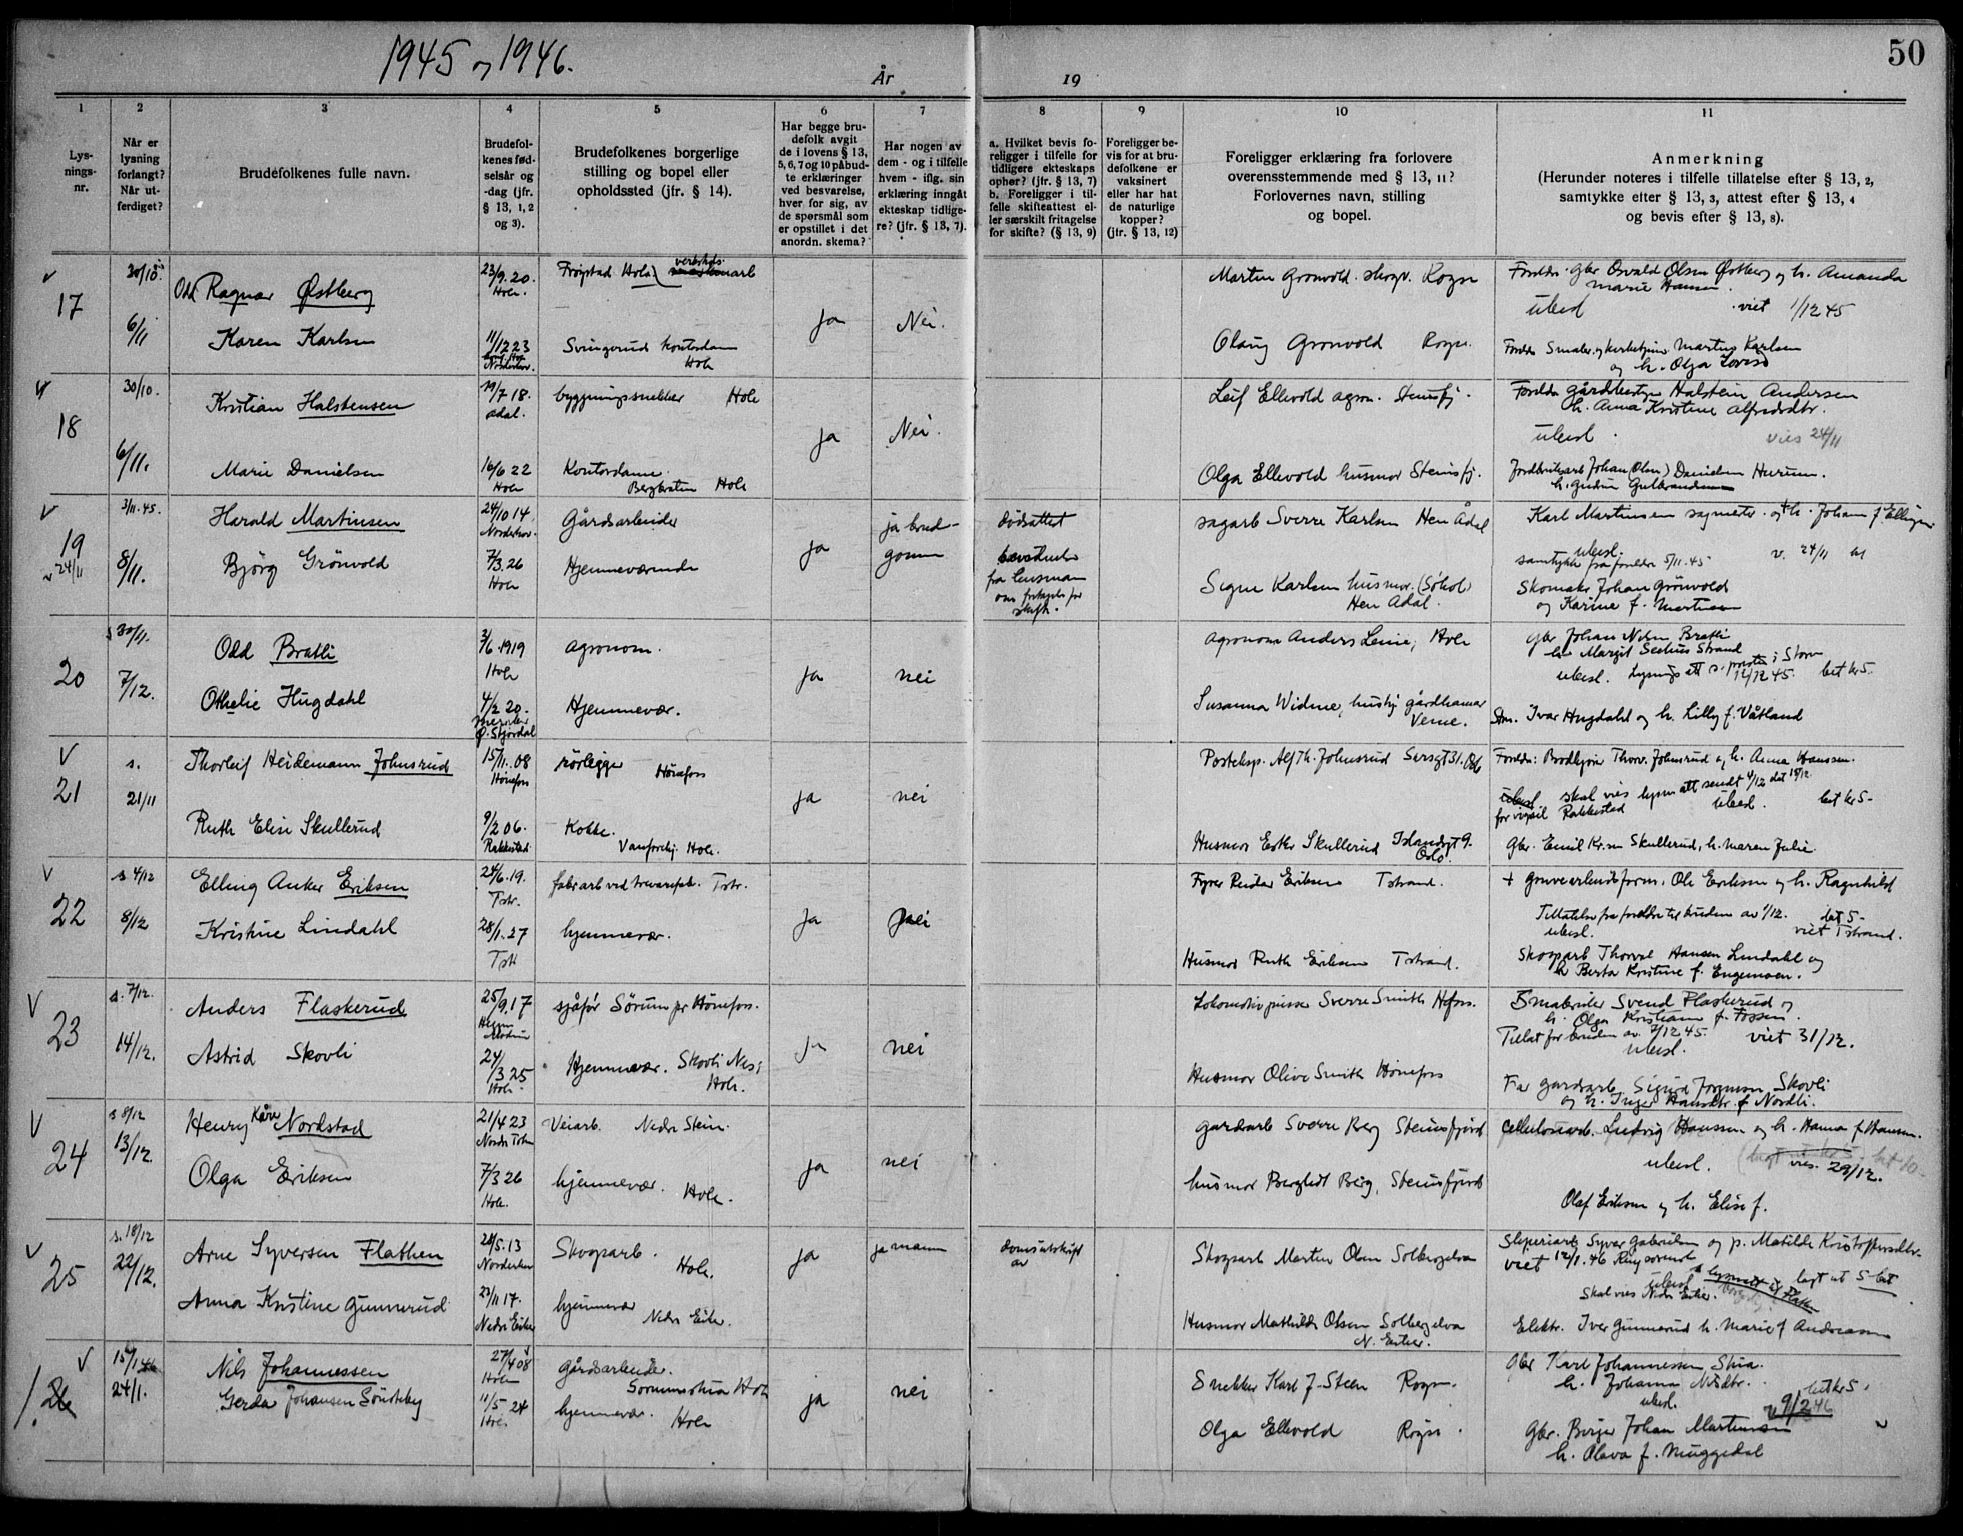 1945 og 1946.
År
19
50
1
2
3
4
5
6
7
8
9
10
11
Lys-
nings-
nr.
Når er
lysning
forlangt?
Når ut-
ferdiget?
Brudefolkenes fulle navn.
Brudefol-
kenes fød-
selsår og
-dag (jfr.
§ 13, 1, 2
og 3).
Brudefolkenes borgerlige
stilling og bopel eller
opholdssted (jfr. § 14).
Har begge bru-
defolk avgit
de i lovens § 13,
5, 6, 7 og 10 påbud-
te erklæringer
ved besvarelse,
hver for sig, av
de spørsmål som
er opstillet i det
anordn. skema?
Har nogen av
dem - og i tilfelle
hvem - iflg. sin
erklæring inngåt
ekteskap tidlige-
re? (jfr. § 13, 7).
a. Hvilket bevis fo-
religger i tilfelle for
tidligere ekteskaps
ophør? (jfr. § 13, 7)
b. Foreligger i til-
felle skifteattest el-
ler særskilt fritagelse
for skifte? (§ 13, 9)
Foreligger be-
vis for at bru-
defolkene er
vaksinert
eller har hat
de naturlige
kopper?
(jfr. § 13, 12)
Foreligger erklæring fra forlovere
overensstemmende med § 13, 11?
Forlovernes navn, stilling
og bopel.
Anmerkning
(Herunder noteres i tilfelle tillatelse efter § 13, 2,
samtykke efter § 13, 3, attest efter § 13, 4
og bevis efter § 13, 8).
17
30/10
6/11
Odd Ragnar Østberg
Karen Karlsen
23/9.20.
Hole.
11/12 23
Norderhov.
Frøystad Hole
Svingerud kontordame
Hole
ja
Nei.
Martin Grønvold
Olaug Grønvold Røyse.
Foreldre: Gbr Osvald Olsen Østberg og h. Amanda
Marie Hansen
ubesl viet 1/12 45
Martin Karlsen
og h. Olga Lovise
18
30/10.
6/11.
Kristian Halstensen
Marie Danielsen
19/7 18.
Ådal.
16/6 22
Hole
byggningssnekker Hole
Kontordame.
Bergbråten Hole
ja
Nei.
Leif Ellevold agron. Stensfj.
Olga Ellevold husmor Stensfj.
Foreldre gårdbestyrer Halstein Andersen
h. Anna Kristine Alfredsdtr.
ubesl. vies 24/11
Johan (Olsen) Danielsen Hurum.
h. Gudrun Gulbrandsen
19
24/11
3/11.45.
8/11.
Harald Martinsen
Bjørg Grönvold
24/10 14
Norderhov.
7/3.26
Hole
Gårdsarbeider
Hjemmeværende
ja
ja brud-
gomm
dødsattest
fra lensmann
om fritagelse for
skifte.
sagarb Sverre Karlsen Hen Ådal
Signe Karlsen husmor. (Søhol)
Hen Ådal.
Karl Martinsen sagmester og h. Johanne f. Ellingsen
ubesl.
samtykke fra foreldre 5/11.45 v. 24/11
Skomaker Johan Grønvold
og Karine f. Martinsen
20
30/11.
7/12.
Odd Bratli
Othelie Hugdahl
3/6.1919
Hole
4/2 20.
Ø. Stjørdal
agronom.
Hjemmevær.
ja
nei
agronom Anders Leine, Hole
Susanna Widme, gårdhamar
Verne.
gbr Johan Nilsen Bratli
h Margit Seehus Strand
ubesl. Lysnings att s. prosten i Storen
12/12 45. bet kr 5.
Ivar Hugdahl og h. Lilly f. Våtland
21
s.
21/11
Thorleif Heidemann Johnsrud
Ruth Elise Skullerud
15/11.08
Hønefoss
9/2 06.
Rakkestad
rørlegger Hønefoss
Kokke.
Hole.
ja
nei
Posteksp. Alf Th. Johnsrud
Husmor Ester Skullerud Islandsgt 9.
Oslo.
Foreldre: Thorv. Johnsrud og h. Anna Hanssen.
skal vies lysn att sendt 4/12 det 18/12
ubesl. bet kr 5-
Rakkestad
Gbr. Emil Kr.sen Skullerud, h. Maren Julie
22
s 4/12
8/12
Elling Anker Eriksen
Kristine Lindahl
24/6.19.
Tstr.
28/1.27
Tstr
fabr arb ved trevarefab. Tstr.
hjemmevær.
ja
nei
Fyrer Reidar Eriksen Tstrand.
Husmor Ruth Eriksen Tstrand.
+ gruvearbeidsform. Ole Eriksen og h. Ragnhild
Tillatelse fra foreldre til bruden av 1/12. bet 5-
ubesl. viet Tstrand.
Skogarb Thorval Hansen Lindahl og
h Berta Kristine f. Engemoen.
23
s. 7/12.
14/12.
Anders Flaskerud
Astrid Skovli
25/9.17
24/3 25
Hole.
sjåfør Sørum pr Hönefoss.
Hjemmevær. Skovli Nes i
Hole.
ja
nei
Lokomotivpusser Sverre Smith Hfoss.
Husmor Olive Smith Hönefoss
Smabruker Svend Flaskerud og
h. Olga Kristiane f. Fossen.
Tillat for bruden av 7/12 45. viet 31/12.
ubesl.
Far gardsarb. Sigurd Jørgensen Skovli
og h. Inger Hansdtr. f Nordli.
24
s 8/12
13/12.
Henry Kåre Nordstad
Olga Eriksen
21/4 23
7/3 26
Hole.
Veiarb. Nedre Stein.
hjemmevær. Hole.
ja
nei
gardsarb Sverre Berg Stensfjord
husmor Bergljot Berg, Stensfjord
Cellulosearb. Ludvig Hanssen og h. Hanna f. Hansen.
ubesl. vies. 29/12.
Olaf Eriksen og h. Elise f.
25
s. 18/12
22/12.
Arne Syversen Flathen
Anna Kristine Gunnerud
28/5.13
Norderhov
23/11 17.
Nedre Eiker
Skogarb. Hole.
hjemmevær
Nedre Eiker.
ja
ja mann
domsutskrift
av
Skogarb Martin Olsen Solbergelva
Husmor Mathilde Olsen Solbergelva
N. Eiker.
Sliperiarb. Syver Gabrielsen og p. Matilde Kristoffersdtr.
viet 12/1.46 lagt ut 5 bet
ubesl
Skal vies Nedre Eiker.
Elektr. Iver Gunnerud h. Marie f Andreassen
1.
26
15/1 46
24/1.
Nils Johannessen
Gerda Johansen Sönsteby
27/4 08
Holen
11/5 24
Hole
Gårdsarbeider.
Hole
hjemmevær. Hole
ja
nei
Snekker Karl J. Steen Røyse.
Olga Ellevold Røyse.
Gbr Karl Johannessen, Stua.
h. Johanne Nilsdtr.
ubesl. bet kr 5,
v 9/2 46
Gbr. Birger Johan Martinsen
h. Olava f. Muggedal